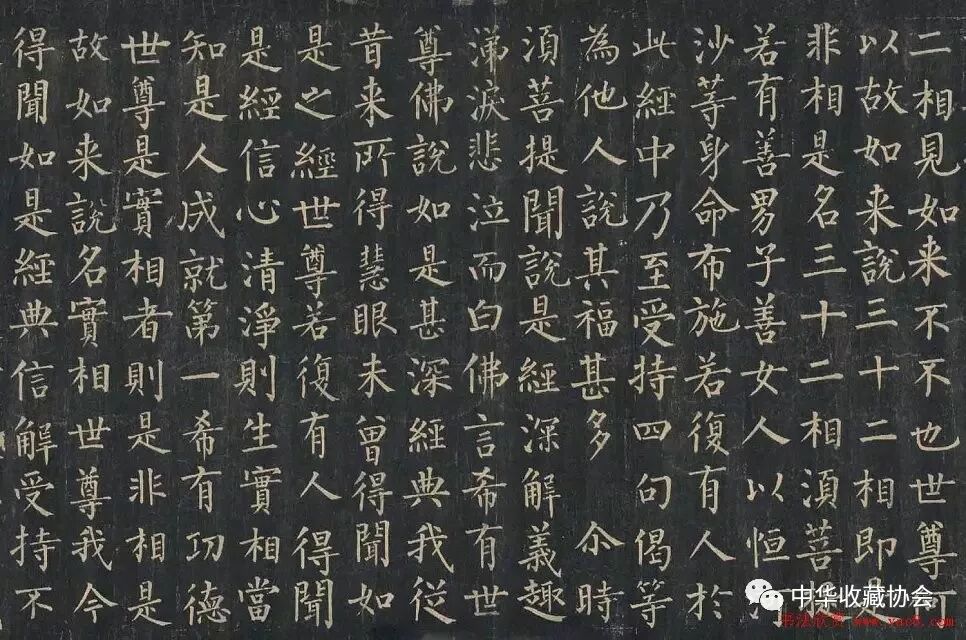 二相見如来不不也世尊何
以故如来說三十二相即是
非相是名三十二相須菩提
若有善男子善女人以恒河
沙等身命布施若復有人於
此經中乃至受持四句偈等
為他人說其福甚多 尒時
須菩提聞說是經深解義趣
涕淚悲泣而白佛言希有世
尊佛說如是甚深經典我從
昔来所得慧眼未曾得聞如
是之經世尊若復有人得聞
是經信心清淨則生實相當
知是人成就第一希有功德
世尊是實相者則是非相是
故如来說名實相世尊我今
得聞如是經典信解受持不
中华收藏协会
书法欣赏